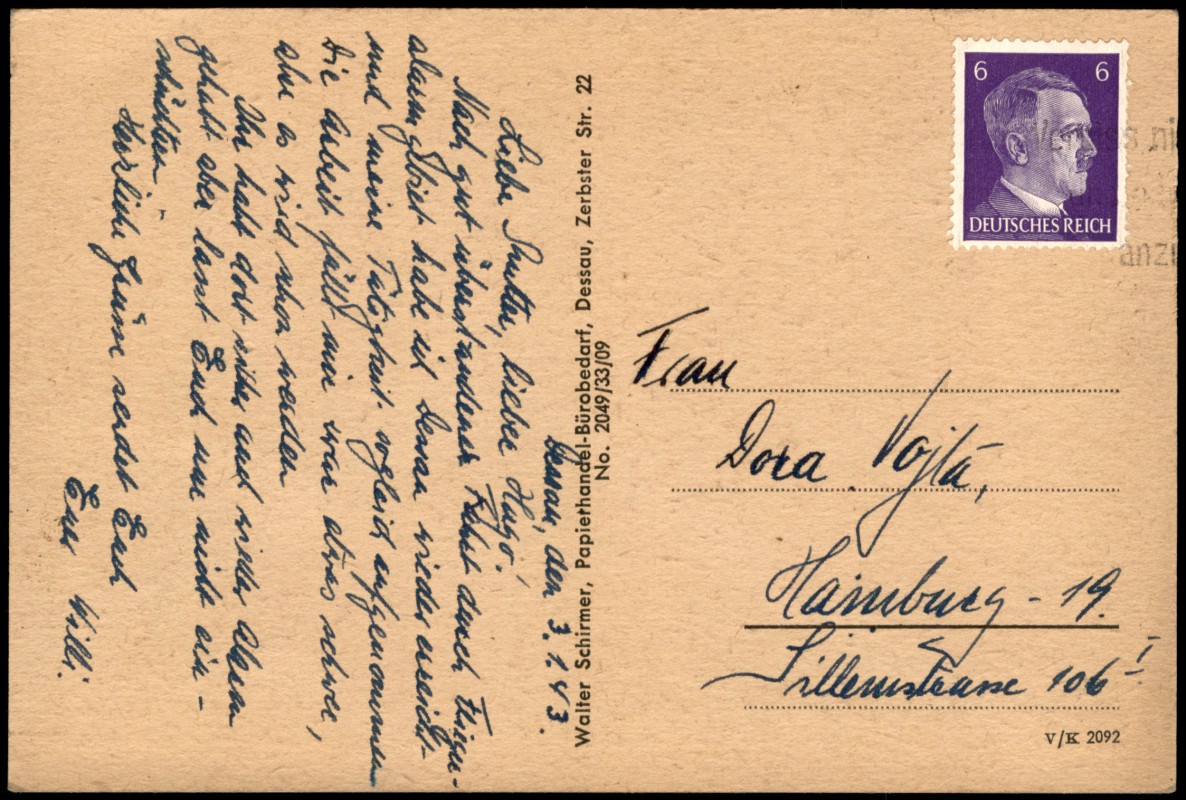 Dessau, den 3.1.43.
Liebe Mutter, lieber Hugo!
Nach gut überstandener Fahrt durch Fliegen-
alarm habe ich Dessau wieder erreicht
und meine Tätigkeit sogleich aufgenommen
Die Arbeit fällt mir zwar etwas schwer,
aber es wird schon werden
Ihr habt dort sicher auch wieder Alarm
gehabt aber lasst Euch nur nicht ein-
schüchtern
Herzliche Grüsse sendet Euch
Euer Willi.
Walter Schirmer, Papierhandel-Bürobedarf, Dessau, Zerbster Str. 22
No. 2049/33/09
6 6
DEUTSCHES REICH
anzu
Frau
Dora Vojtá,
Hamburg - 19.
Sillemstrasse 106 I
V/K 2092